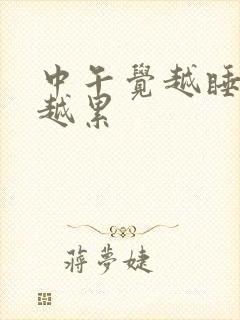 中午覺越睡
越累
蔣夢婕